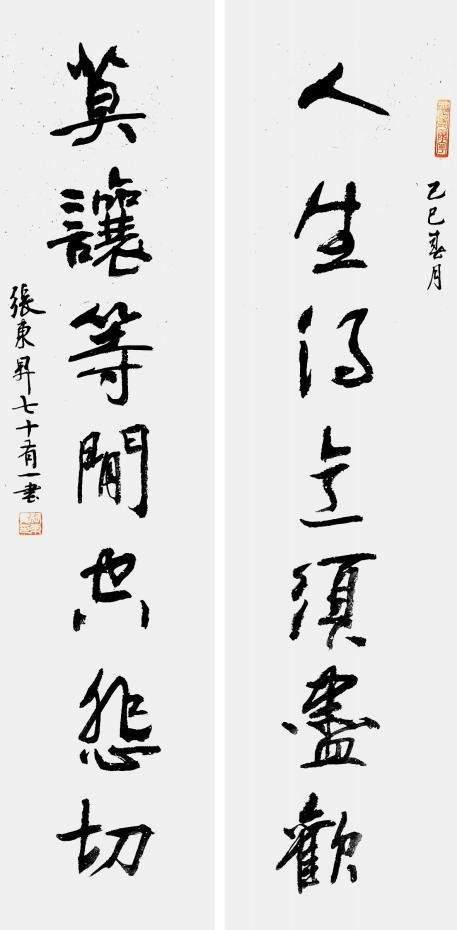 乙巳春月
人生得意須盡歡
莫讓等閒空悲切
張東昇七十有一書